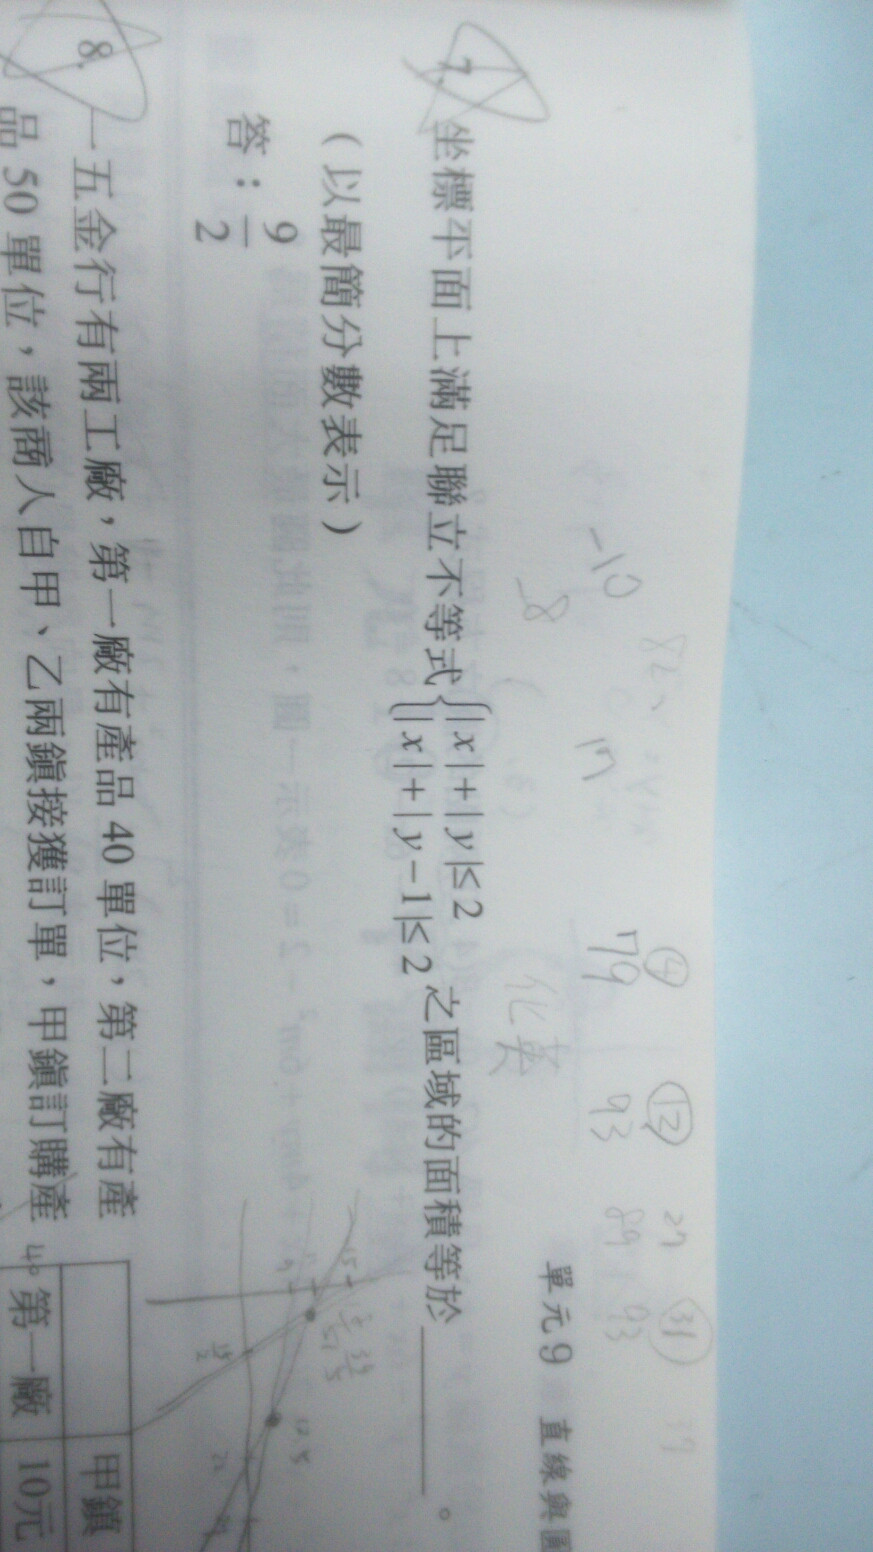 單元9 直線與圓
7. 坐標平面上滿足聯立不等式{|x|+|y|≤2 |x|+|y−1|≤2 之區域的面積等於________。
(以最簡分數表示)
答：9/2
8. 一五金行有兩工廠，第一廠有產品40單位，第二廠有產
品50單位，該商人自甲、乙兩鎮接獲訂單，甲鎮訂購產
甲鎮
第一廠 10元
④ ⑫ 27 ㉛ 39
79 93 89 93
化英
-10
-8